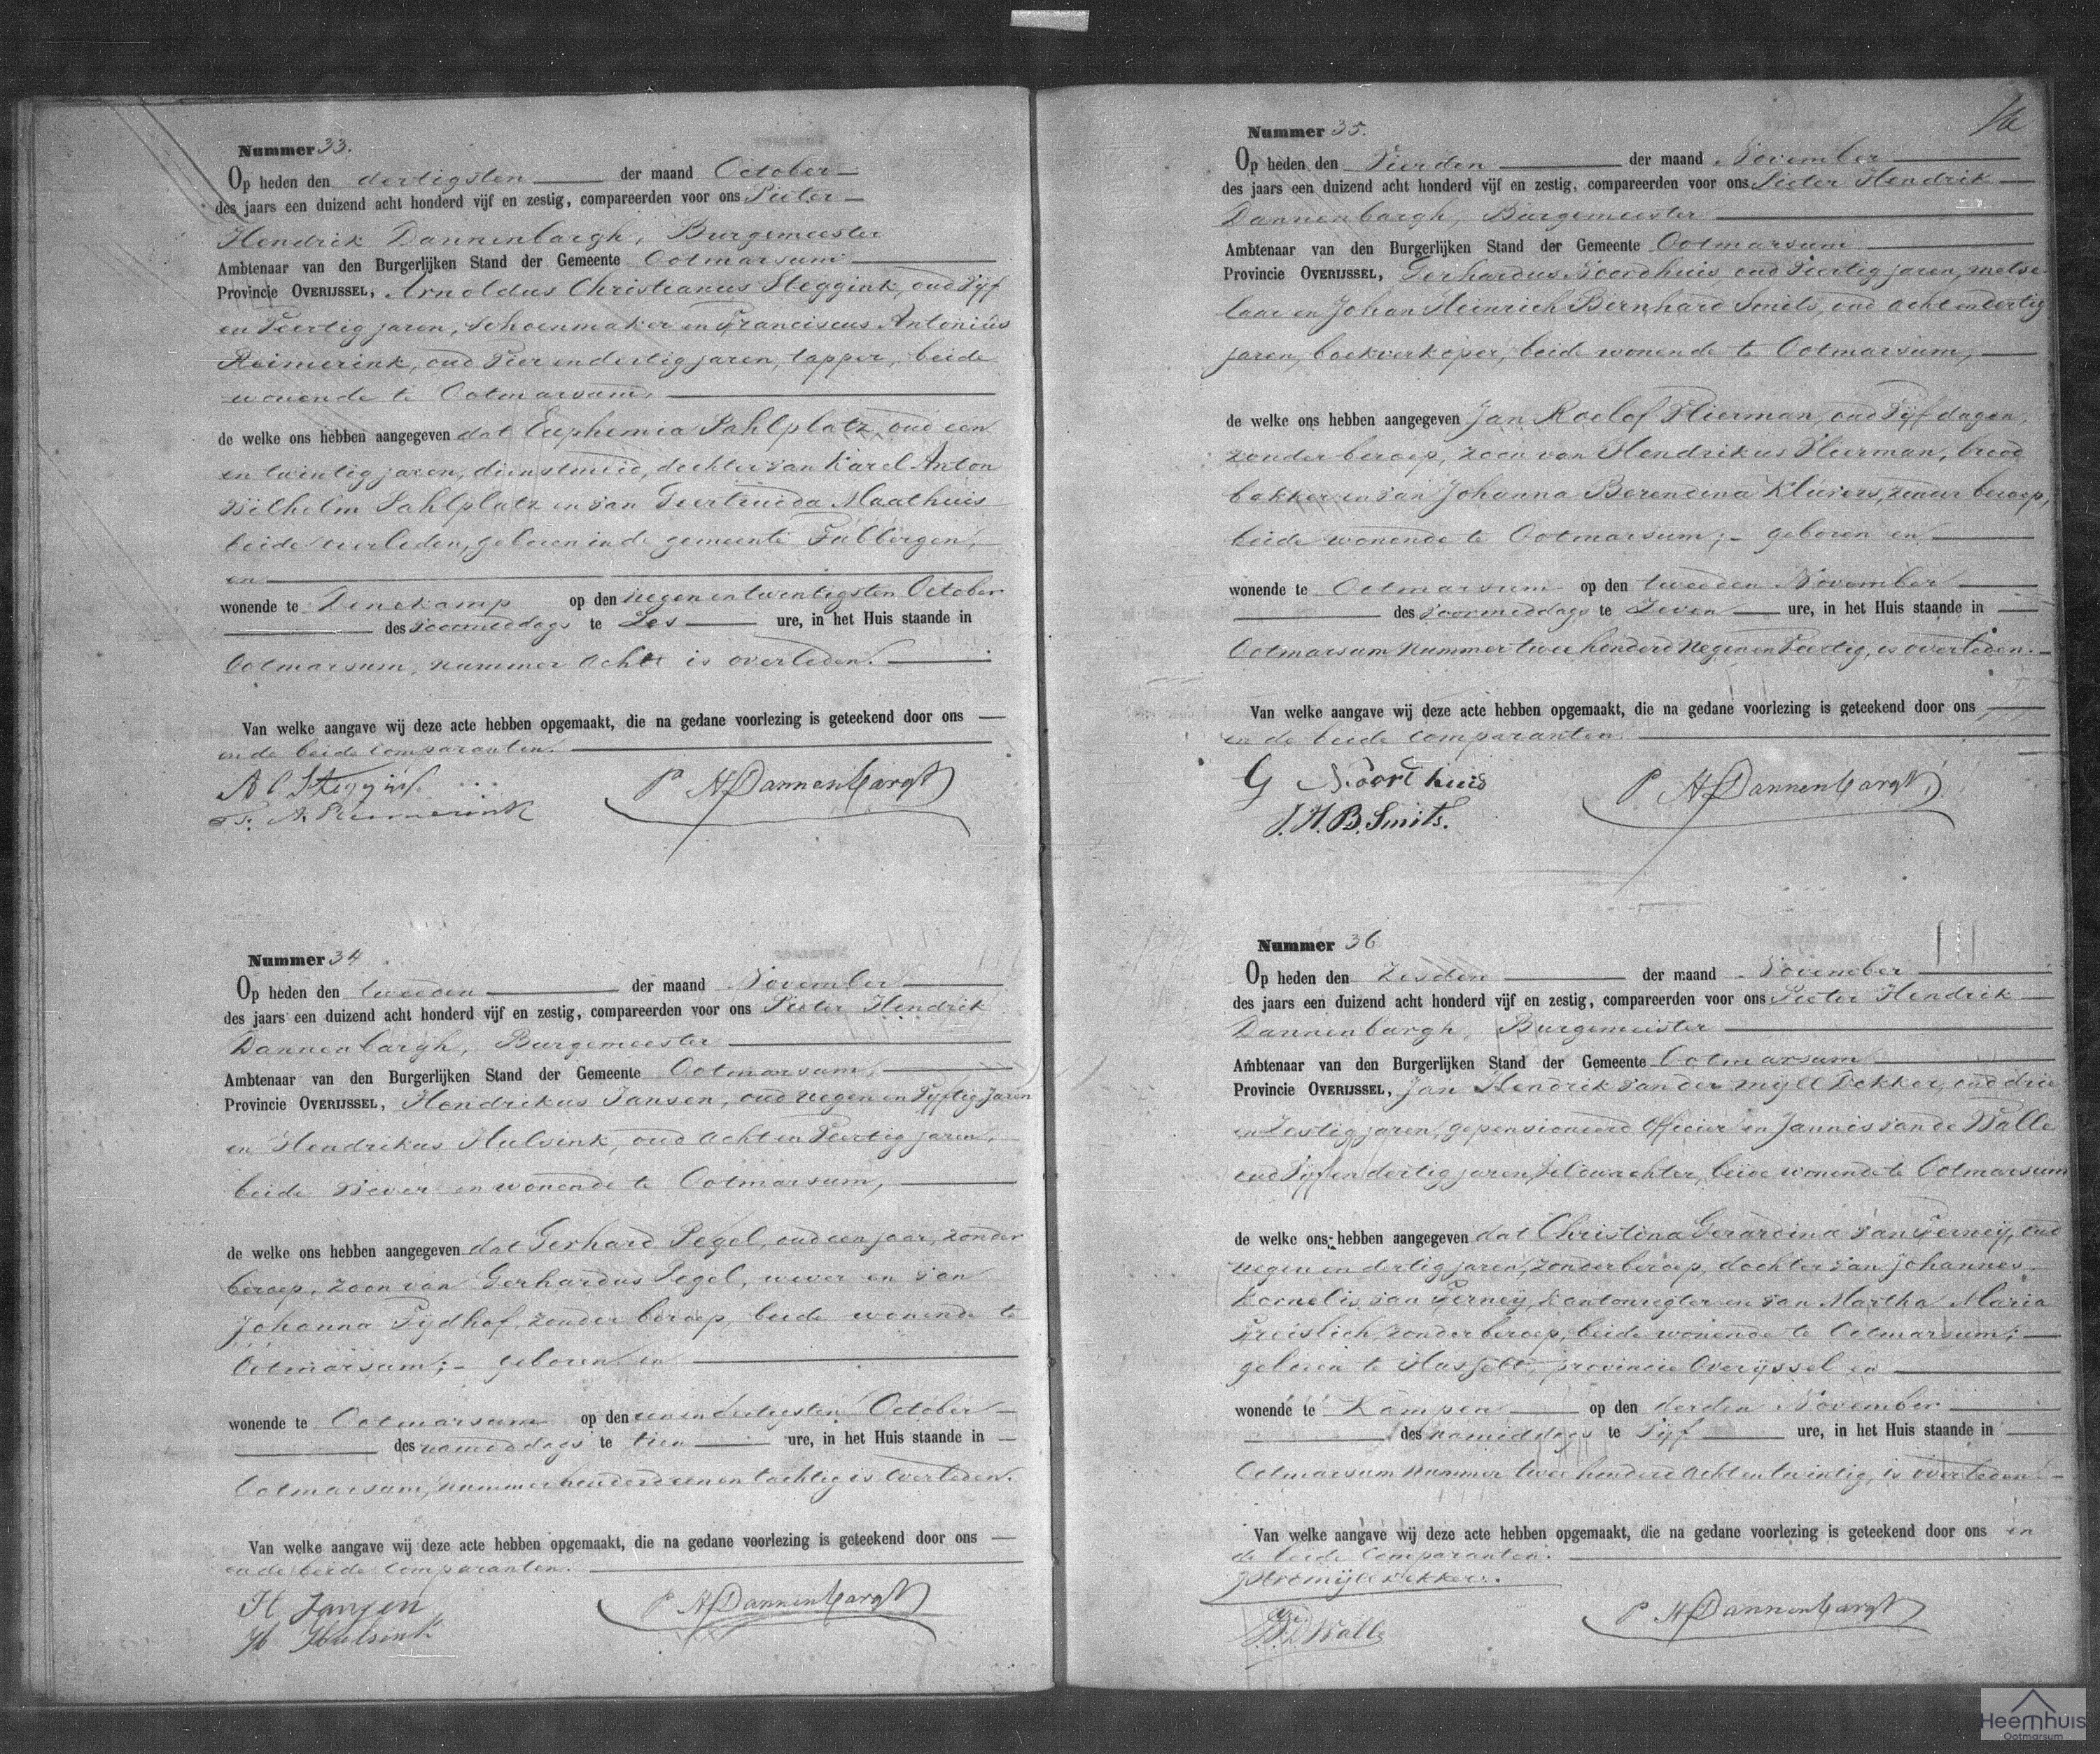 Nummer 33.
Op heden den dertigsten der maand October
des jaars een duizend acht honderd vijf en zestig, compareerden voor ons Pieter
Hendrik Dannenbargh, Burgemeester
Ambtenaar van den Burgerlijken Stand der Gemeente Ootmarsum
Provincie OVERIJSSEL, Arnoldus Christianus Steggink, oud Vijf
en Veertig jaren, schoenmaker en Franciscus Antonius
Reimerink, oud Vier en dertig jaren, tapper, beide
wonende te Ootmarsum,
de welke ons hebben aangegeven dat Euphemia Sahlplatz oud een
en twintig jaren, dienstmeid, dochter van Karel Anton
Wilhelm Sahlplatz en van Geertruida Maathuis
beide overleden, geboren in de gemeente Tubbergen,
en
wonende te Denekamp op den negen en twintigsten October
des voormiddags te Zes ure, in het Huis staande in
Ootmarsum, nummer acht is overleden.
Van welke aangave wij deze acte hebben opgemaakt, die na gedane voorlezing is geteekend door ons
en de beide comparanten.
A C Steggink
F. A. Reimerink
P H Dannenbargh
Nummer 34
Op heden den tweeden der maand November
des jaars een duizend acht honderd vijf en zestig, compareerden voor ons Pieter Hendrik
Dannenbargh, Burgemeester
Ambtenaar van den Burgerlijken Stand der Gemeente Ootmarsum
Provincie OVERIJSSEL, Hendrikus Jansen, oud negen en Vijftig jaren
en Hendrikus Hulsink, oud acht en Veertig jaren,
beide Wever en wonende te Ootmarsum,
de welke ons hebben aangegeven dat Gerhard Pegel, oud een jaar, zonder
beroep, zoon van Gerhardus Pegel, wever en van
Johanna Tijdhof, zonder beroep, beide wonende te
Ootmarsum; geboren en
wonende te Ootmarsum op den een en dertigsten October
des namiddags te tien ure, in het Huis staande in
Ootmarsum, nummer honderd een en tachtig is overleden.
Van welke aangave wij deze acte hebben opgemaakt, die na gedane voorlezing is geteekend door ons
en de beide comparanten.
H Jansen
H Hulsink
P H Dannenbargh
Nummer 35.
Op heden den Vierden der maand November
des jaars een duizend acht honderd vijf en zestig, compareerden voor ons Pieter Hendrik
Dannenbargh, Burgemeester
Ambtenaar van den Burgerlijken Stand der Gemeente Ootmarsum
Provincie OVERIJSSEL, Gerhardus Noordhuis, oud Veertig jaren, metse
laar en Johan Heinrich Bernhard Smits, oud acht en dertig
jaren, boekverkoper, beide wonende te Ootmarsum,
de welke ons hebben aangegeven Jan Roelof Flierman, oud Vijf dagen,
zonder beroep, zoon van Hendrikus Flierman, brood
bakker en van Johanna Berendina Kluvers, zonder beroep,
beide wonende te Ootmarsum; geboren en
wonende te Ootmarsum op den tweeden November
des voormiddags te Zeven ure, in het Huis staande in
Ootmarsum nummer twee honderd Negen en Veertig, is overleden.
Van welke aangave wij deze acte hebben opgemaakt, die na gedane voorlezing is geteekend door ons
en de beide comparanten.
G Noordhuis
J. H. B. Smits.
P H Dannenbargh
Nummer 36
Op heden den Zesden der maand November
des jaars een duizend acht honderd vijf en zestig, compareerden voor ons Pieter Hendrik
Dannenbargh, Burgemeester
Ambtenaar van den Burgerlijken Stand der Gemeente Ootmarsum
Provincie OVERIJSSEL, Jan Hendrik van der Mijll Dekker, oud drie
en Zestig jaren, gepensioneerd Officier en Jannis van de Walle
oud Vijf en dertig jaren, veldwachter, beide wonende te Ootmarsum
de welke ons hebben aangegeven dat Christina Gerardina van Ferneij, oud
negen en dertig jaren, zonder beroep, dochter van Johannes
Kornelis van Ferneij, kantonregter en van Martha Maria
Freislich, zonder beroep, beide wonende te Ootmarsum;
geboren te Hasselt, provincie Overijssel en
wonende te Kampen op den derden November
des namiddags te Vijf ure, in het Huis staande in
Ootmarsum nummer twee honderd acht en twintig, is overleden.
Van welke aangave wij deze acte hebben opgemaakt, die na gedane voorlezing is geteekend door ons en
de beide comparanten.
Mijll Dekker.
Walle
P H Dannenbargh
Heemhuis
Ootmarsum